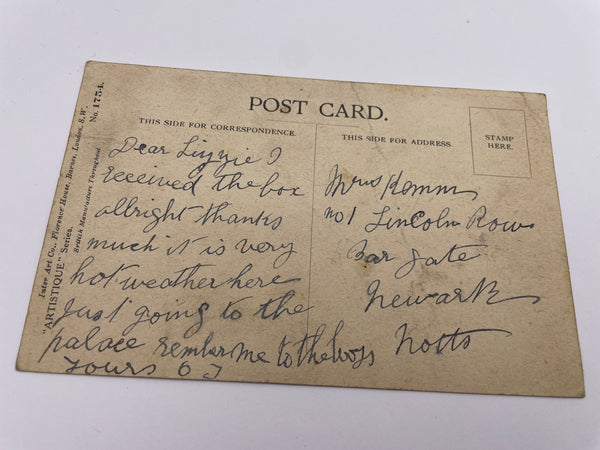 POST CARD.
THIS SIDE FOR CORRESPONDENCE.
THIS SIDE FOR ADDRESS.
STAMP
HERE.
Inter Art Co., Florence House, Barnes, London, S.W.
"ARTISTIQUE" Series.
No. 1754.
British Manufacture Throughout
Dear Lizzie I
received the box
allright thanks
much it is very
hot weather here
Just going to the
palace rember me to the boys
Yours
Mrs
no 1 Lincoln Row
Bar gate
Newark
Notts